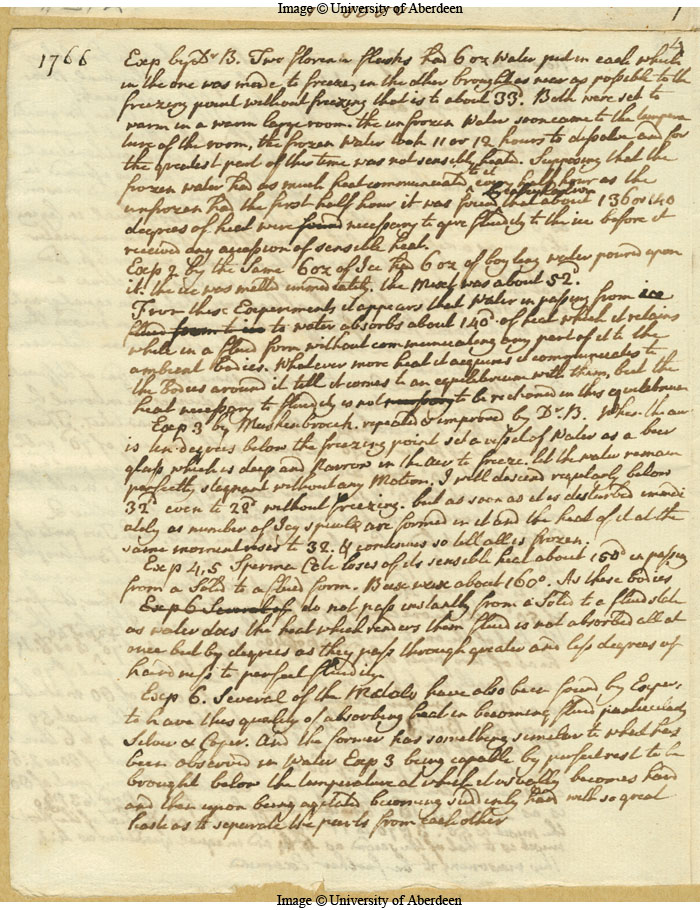 Image © University of Aberdeen
1766
Exp by Dr B. Two florence flasks had 6 oz water put in each which
in the one was made to freeze, in the other brought as near as possible to the
freezing point without freezing that is to about 33d. Both were set to
warm in a warm large room. the unfrozen Water soon came to the tempera
ture of the room, the frozen Water took 11 or 12 hours to dissolve and for
the greatest part of this time was not sensibly heated. Supposing that the
frozen water had as much heat communicated to it every half hour as the
unfrozen had the first half hour it was found that about 136 or 140
degrees of heat were found necessary to give fluidity to the ice before it
received any accession of sensible heat.
Exp 2 by the Same 6 oz of Ice had 6 oz of boyling water poured upon
it. the ice was melted immediately. the Mixt was about 52d.
From these Experiments it appears that Water in passing from ice
fluid from to ice to water absorbs about 140d. of heat which it retains
while in a fluid form without communicating any part of it to the
ambient bodies. Whatever more heat it acquires it communicates to
the Bodies around it till it comes to an equilibrium with them, but the
heat necessary to fluidity is not necessary to be reckoned in this equilibrium
Exp 3 by Mushenbroeck. repeated & improved by Dr. B. When the air
is ten degrees below the freezing point set a vessel of Water as a beer
glass which is deep and Narrow in the air to freeze. let the water remain
perfectly stagnant without any Motion. I will descend regularly below
32d even to 22d without freezing. but as soon as it is disturbed immedi
ately as number of Icy spiculæ are formed in it and the heat of it at the
same moment rises to 32. & continues so till all is frozen.
Exp 4, 5 Sperma Ceti loses of its sensible heat about 150d in passing
from a Solid to a fluid form. Bees wax about 160d. As these bodies
Exp 6 Several of do not pass instantly from a Solid to a fluid state
as water does the heat which renders them fluid is not absorbed all at
once but by degrees as they pass through greater and less degrees of
hardness to perfect fluidity.
Exp 6. Several of the Metals have also been found by Exper:
to have this quality of absorbing heat in becoming fluid particularly
Silver & Coper. And the former has something similar to what has
been observed in Water Exp 3 being capable by perfect rest to be
brought below the temperature at which it usually becomes hard
and then upon being agitated becoming suddenly hard with so great
haste as to separate the parts from each other
Image © University of Aberdeen